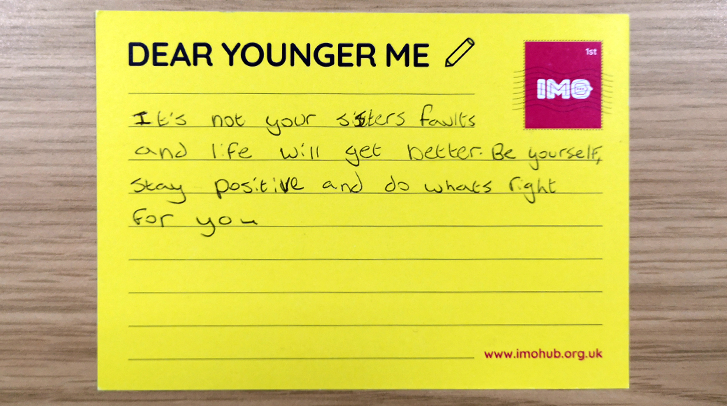 DEAR YOUNGER ME
1st
IMO
It's not your sisters faults
and life will get better. Be yourself,
stay positive and do whats right
for you
www.imohub.org.uk